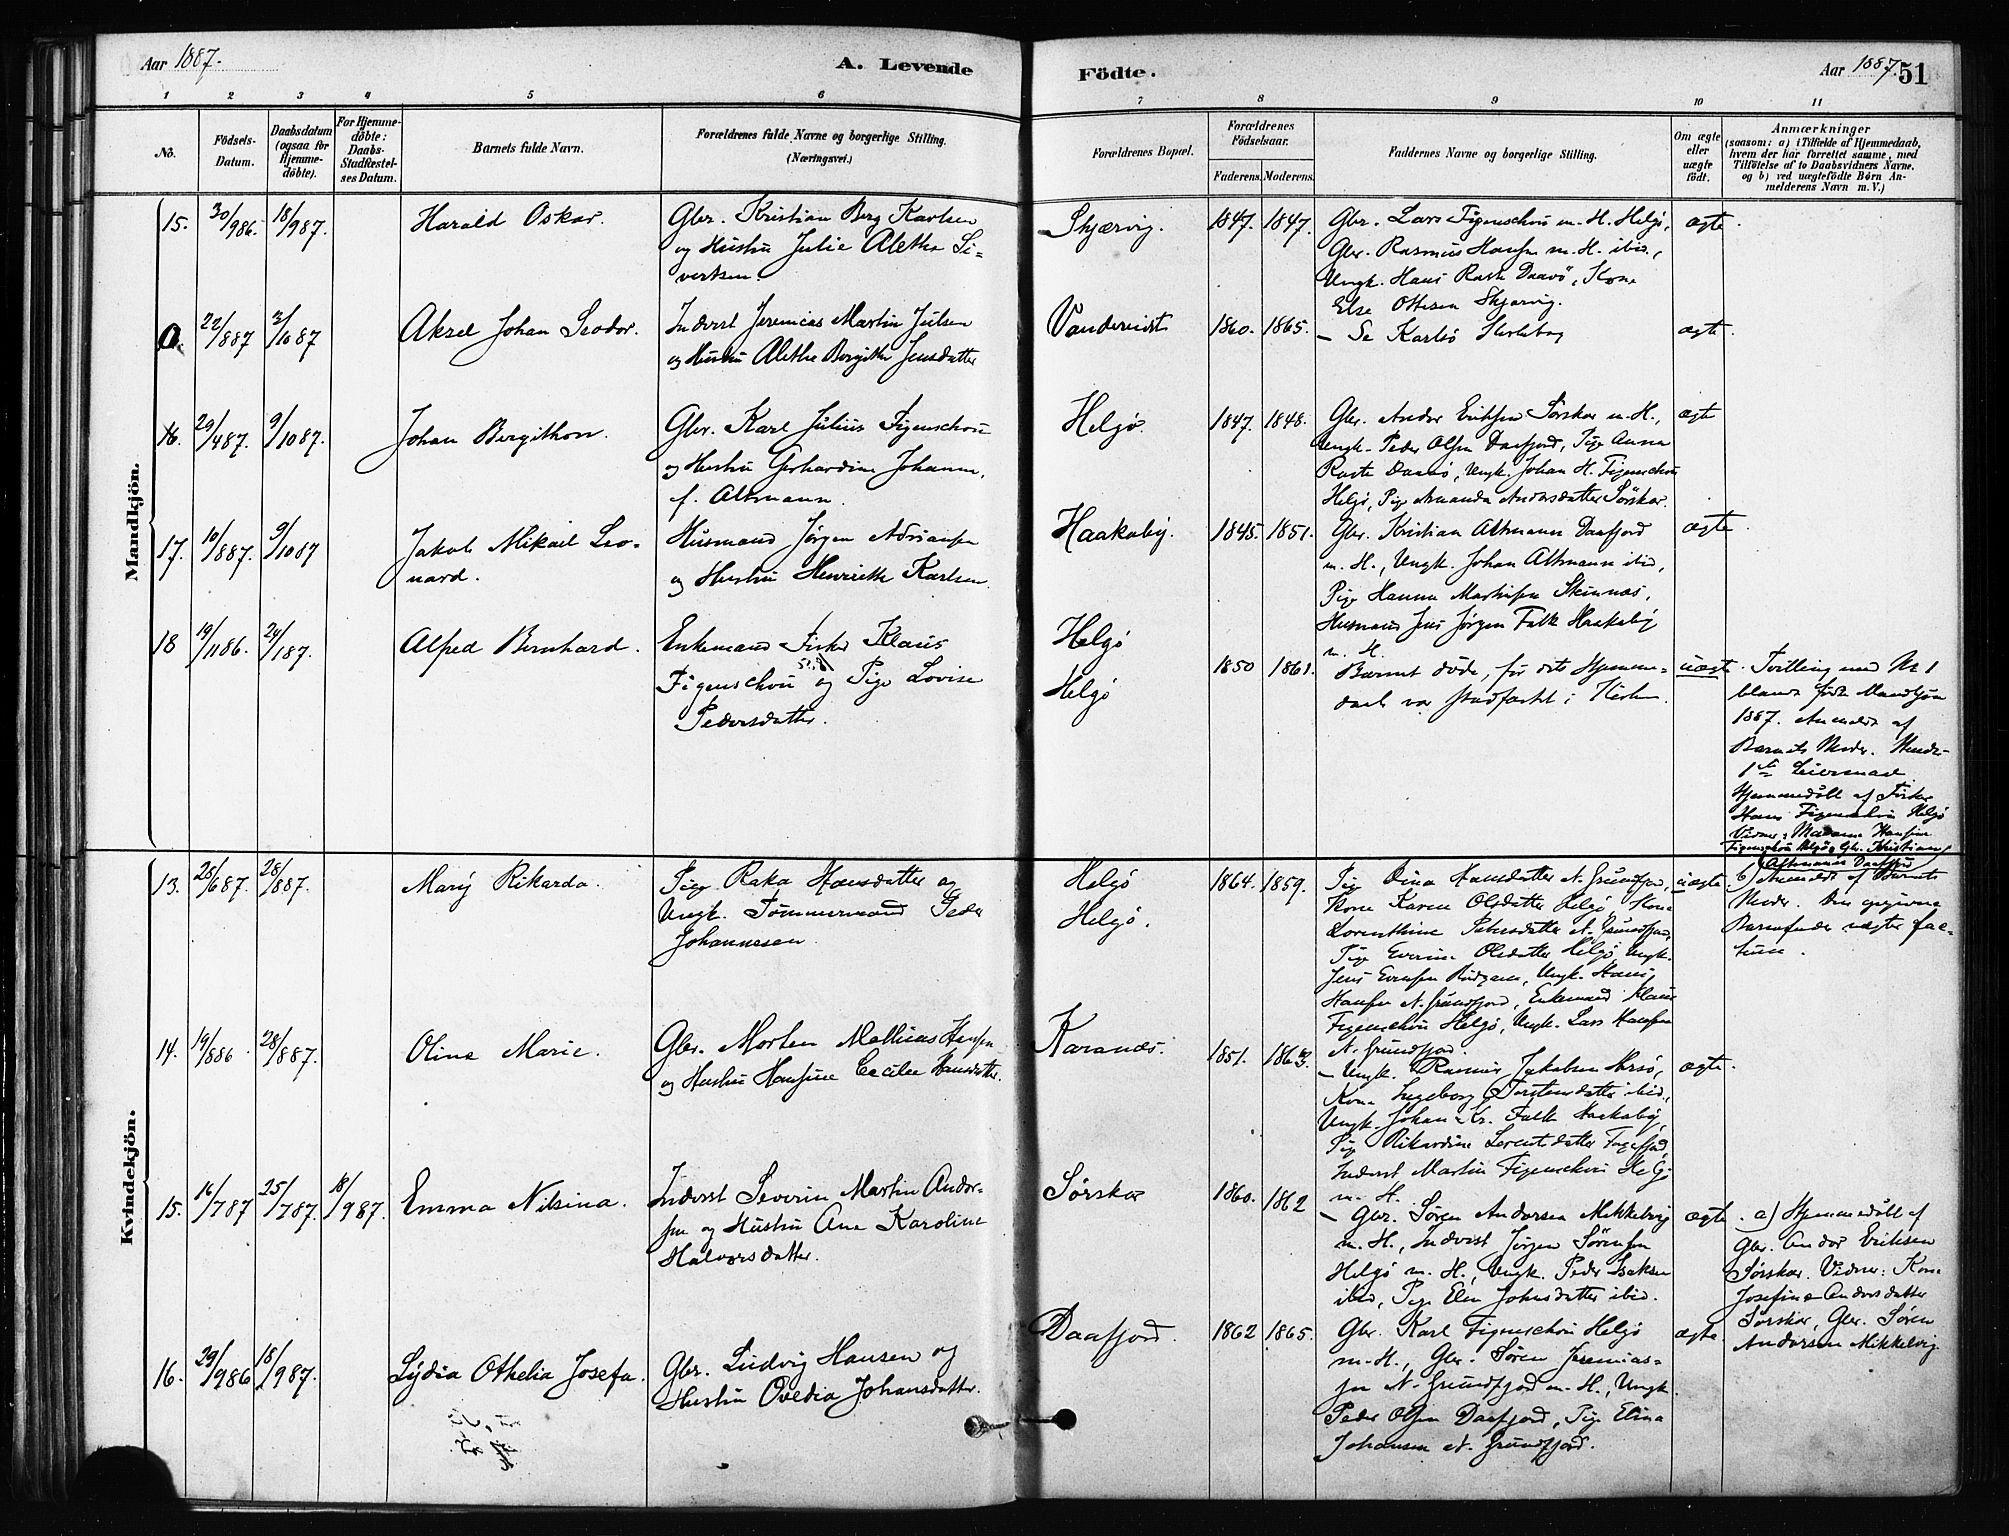 Aar 1887.
A. Levende
Födte.
Aar 1887.
51
1 2 3 4 5 6 7 8 9 10 11
No.
Födsels-
Datum.
Daabsdatum
(ogsaa for
Hjemme-
döbte).
For Hjemme-
döbte:
Daabs-
Stadfæstel-
ses Datum.
Barnets fulde Navn.
Forældrenes fulde Navne og borgerlige Stilling.
(Næringsvei.)
Forældrenes Bopæl.
Forældrenes
Födselsaar.
Faderens. Moderens.
Faddernes Navne og borgerlige Stilling.
Om ægte
eller
uægte
födt.
Anmærkninger
(saasom: a) i Tilfælde af Hjemmedaab,
hvem der har forrettet samme, med
Tilföielse af to Daabsvidners Navne,
og b) ved uægtefödte Börn An-
melderens Navn m. V.)
Mandkjön.
15. 30/986. 18/987. Harald Oskar.
Gbr. Kristian Berg Karlsen
og Hustru Julie Alethe Si-
vertsen.
Skjærvig. 1847. 1847.
Gbr. Lars Figenschou m. H. Helgö,
Gbr. Rasmus Hansen m. H. ibid.,
Ungk. Hans Daavö, Kone
Else Ottesen Skjærvig.
ægte.
0. 22/887 3/1087 Aksel Johan Leodor.
Inderst Jeremias Martin Julsen
og Hustru Alethe Bergitte Jensdatter
1860. 1865.
– Se Karlsö
ægte.
16. 29/487. 9/1087. Johan Bergithon.
Gbr. Karl Julius Figenschou
og Hustru Gerhardine Johanne,
f. Altmann.
Helgö. 1847. 1848.
Gbr. Andor Eriksen Sörskar m. H.,
Ungk. Peder Olsen Daafjord, Pige Anna
Daavö, Ungk. Johan H. Figenschou
Helgö, Pige Amanda Andorsdatter Sörskar.
ægte
17. 10/887. 9/1087 Jakob Mikael Leo-
nard.
Husmand Jörgen Adriansen
og Hustru Henriette Karlsen
Haakøby. 1845. 1851.
Gbr. Kristian Altmann Daafjord
m. H., Ungk. Johan Altmann ibid,
Pige Hanna Martinsen Steinnæs,
Husmand Jens Jörgen Falk Haakøby
m. H.
ægte.
18 19/1186. 24/187. Alfred Bernhard.
Enkemand Fisker Klaus
Figenschou og Pige Lovise
Pedersdatter.
Helgö
Helgö
1850 1861.
Barnet döde, för dets Hjemme-
daab var stadfæstet i Kirken.
uægte.
Tvilling med No 1
blandt födte Mandkjön
1887. Anmeldt af
Barnets Moder. Hendes
1ste Leiermaal.
Hjemmedöbt af Fisker
Hans Figenschou Helgö
Vidner: Madame Hansine
Figenschou Helgö, Gbr. Kristian
Altmann Daafjord
Kvindekjön.
13. 28/687. 28/887. Mary Rikarda.
Pige Raka Hansdatter og
Ungk. Tömmermand Peder
Johannesen.
Helgö
Helgö.
1864. 1859.
Pige Dina Hansdatter N. Grundfjord,
Kone Karen Olsdatter Helgö, Kone
Dorenthine Petersdatter N. Grundfjord,
Pige Everine Olsdatter Helgö, Ungk.
Jens Evensen, Ungk. Hans
Hansen N. Grundfjord, Enkemand Klaus
Figenschou Helgö, Ungk. Lars Hansen
N. Grundfjord.
uægte.
b) Anmeldt af Barnets
Moder. Den opgivne
Barnefader nægter fac-
tum.
14. 19/886. 28/887. Oline Marie.
Gbr. Morten Mathias Hansen
og Hustru Hansine Cecilie Hansdatter.
Karanæs. 1851. 1863.
– Ungk. Rasmus Jakobsen,
Kone Ingeborg Torstensdatter ibid.,
Ungk. Johan Kr. Falk Haakøby,
Pige Rikardine Lorentsdatter Fagerfjord
Inderst Martin Figenschou Helgö
m. H.
ægte.
15. 16/787 25/787. 18/987. Emma Nilsina.
Inderst Severin Martin Andor-
sen og Hustru Ane Karoline
Halvorsdatter.
Sörskar 1860. 1862
– Gbr. Sören Andorsen Mikkelvig
m. H., Inderst Jörgen Sörensen
Helgö m. H., Ungk. Peder Isaksen
ibid, Pige Elen Johnsdatter ibid.
ægte.
a) Hjemmedöbt af
Gbr. Andor Eriksen
Sörskar. Vidner: Kone
Josefine Andorsdatter
Sörskar, Gbr. Sören
Andorsen Mikkelvig.
16. 29/986 18/987. Lydia Othelia Josefa.
Gbr. Ludvig Hansen og
Hustru Ovedia Johansdatter.
Daafjord. 1862 1865.
Gbr. Karl Figenschou Helgö
m. H., Gbr. Sören Jeremias-
sen N. Grundfjord m. H., Ungk.
Peder Olsen Daafjord, Pige Elina
Johansen N. Grundfjord.
ægte.